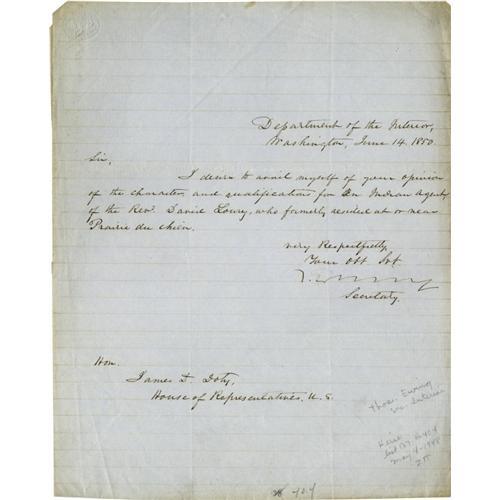 Department of the Interior,
Washington, June 14. 1850.
Sir,
I desire to avail myself of your opinion
of the character, and qualification for an Indian Agent,
of the Revd. David Lowry, who formerly resided at or near
Prairie du Chien.
Very Respectfully
Your Obt Svt
Secretary.
Hon.
James D. Doty,
House of Representatives, U.S.
Thos. Ewing
Sec Interior
May 4-1948
404